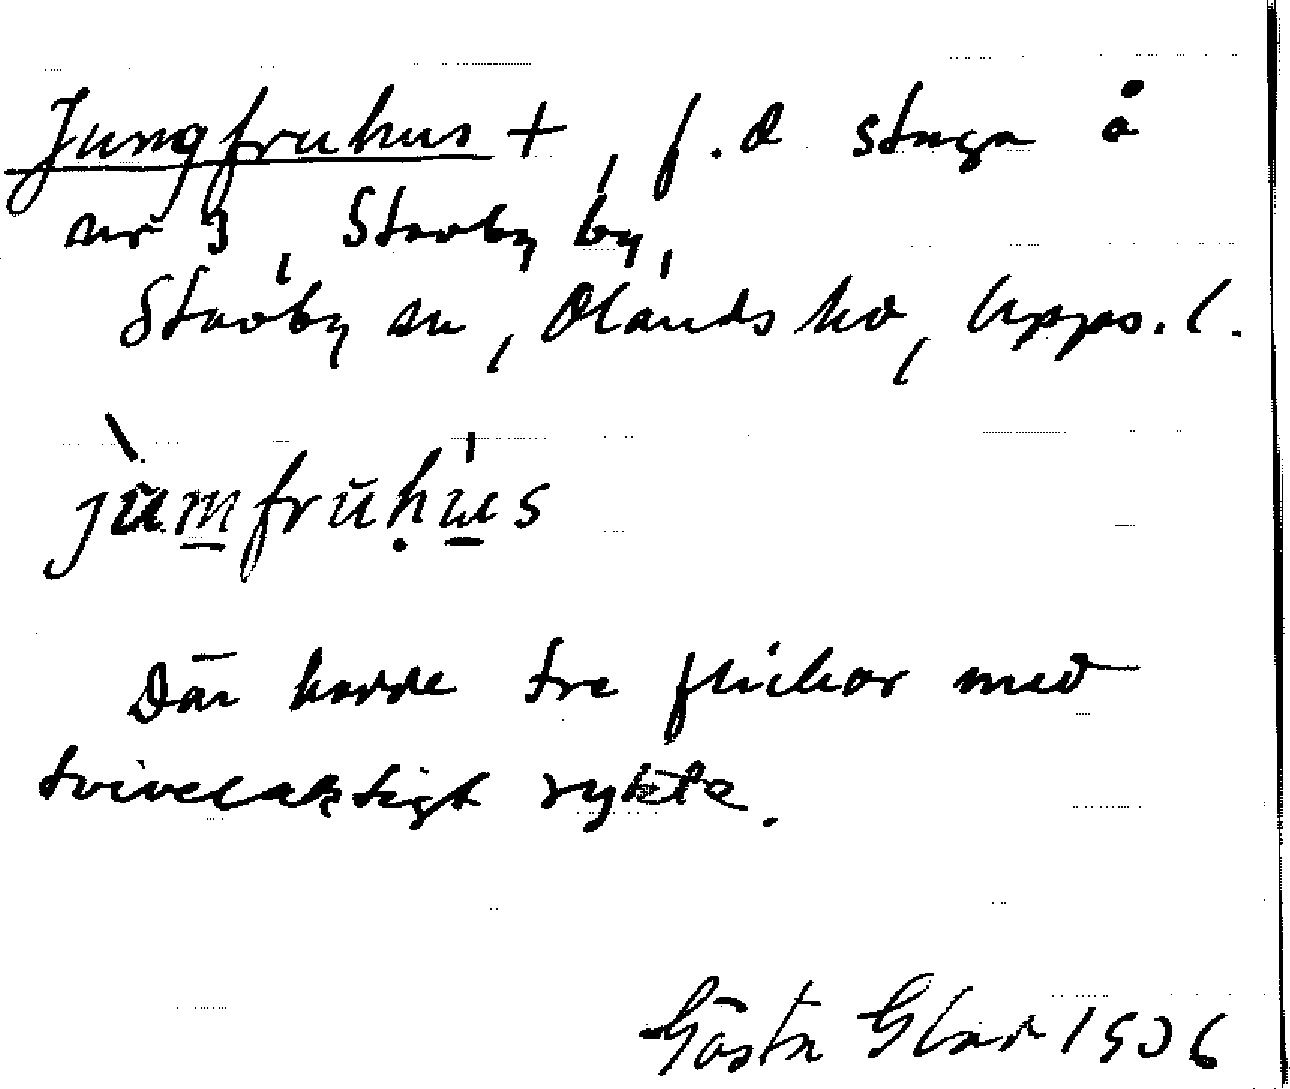 Jungfruhus +, f.d stuga å
nr 3, Stavby by,
Stavby sn, Olands hd, Upps. l.
jùmfruhu̇s
Där bodde tre flickor med
tvivelaktigt rykte.
Gösta 1906